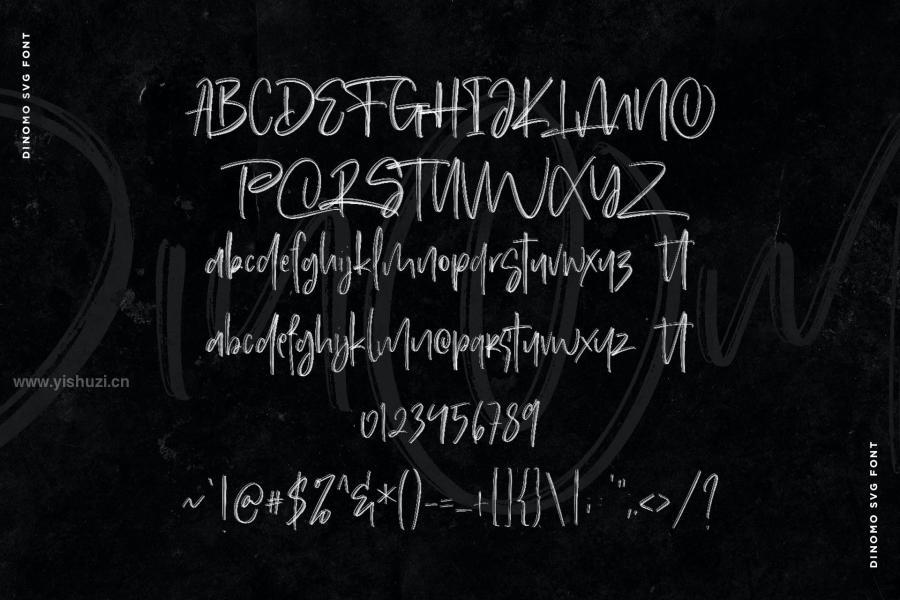 DINOMO SVG FONT
ABCDEFGHIJKLMNO
PQRSTUVWXYZ
abcdefghijklmnopqrstuvwxyz tt
abcdefghijklmnopqrstuvwxyz tt
www.yishuzi.cn
0123456789
~`!@#$%^&*()-=_+[]{}\|;:'",.<>/?
DINOMO SVG FONT